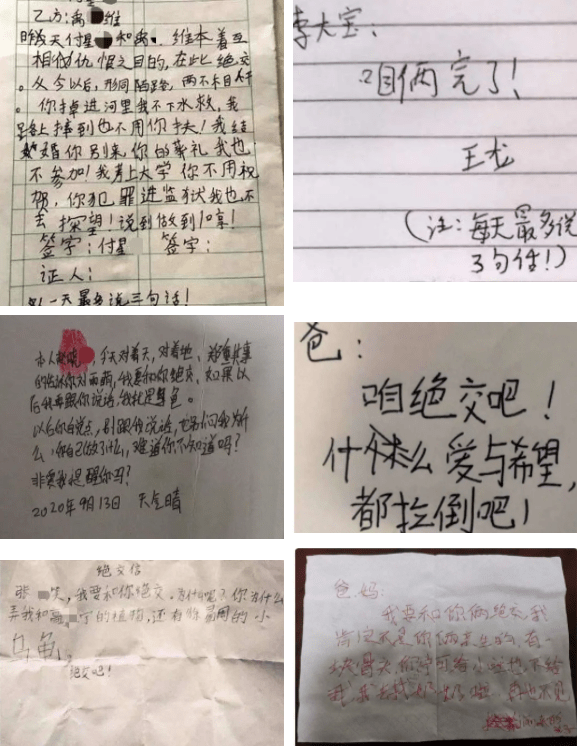 乙方:禹 维
昨天付星 和禹.维本着互
相仇恨之目的,在此绝交
。从今以后,形同陌路,两不相
。你掉进河里我不下水救,我
路上摔到也不用你扶!我结
婚你别来,你的葬礼我也
不参加!我考上大学你不用祝
贺,你犯罪进监狱我也不
去探望!说到做到!
签字:付星 签字:
证人:
一天最多说三句话!
李大宝:
咱俩完了!
王龙
(注:每天最多说
3句话!)
本人 ,今天对着天,对着地,郑重其事
的告诉你对面萌,我要和你绝交,如果以
后我再跟你说话,我就是
以后你自觉点,别跟我说话,也别问我为什
么,你自己做了什么,难道你不知道吗?
非要我提醒你吗?
2020年9月13日 天气晴
爸:
咱绝交吧!
什么 爱与希望,
都拉倒吧!
绝交信
张 笑,我要和你绝交,为什么呢?你为什么
弄我和 宁的植物,还有你 的小
乌龟。
绝交吧!
爸妈:
我要和你俩绝交,我
肯定不是你俩亲生的,有一
块
我,